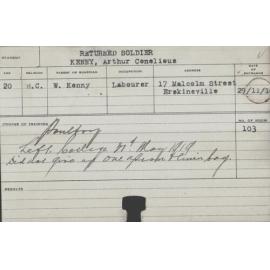 RETURNED SOLDIER
STUDENT KENNY, Arthur Conelious
AGE RELIGION PARENT OR GUARDIAN OCCUPATION ADDRESS DATE OF ENTRANCE
20 R.C. W. Kenny Labourer 17 Malcolm Street
Erskineville 29/11/
COURSE OF TRAINING No. OF
103
Poultry
Left College 21st May 1919.
Did not give up one apron & linen bag.
RESULTS